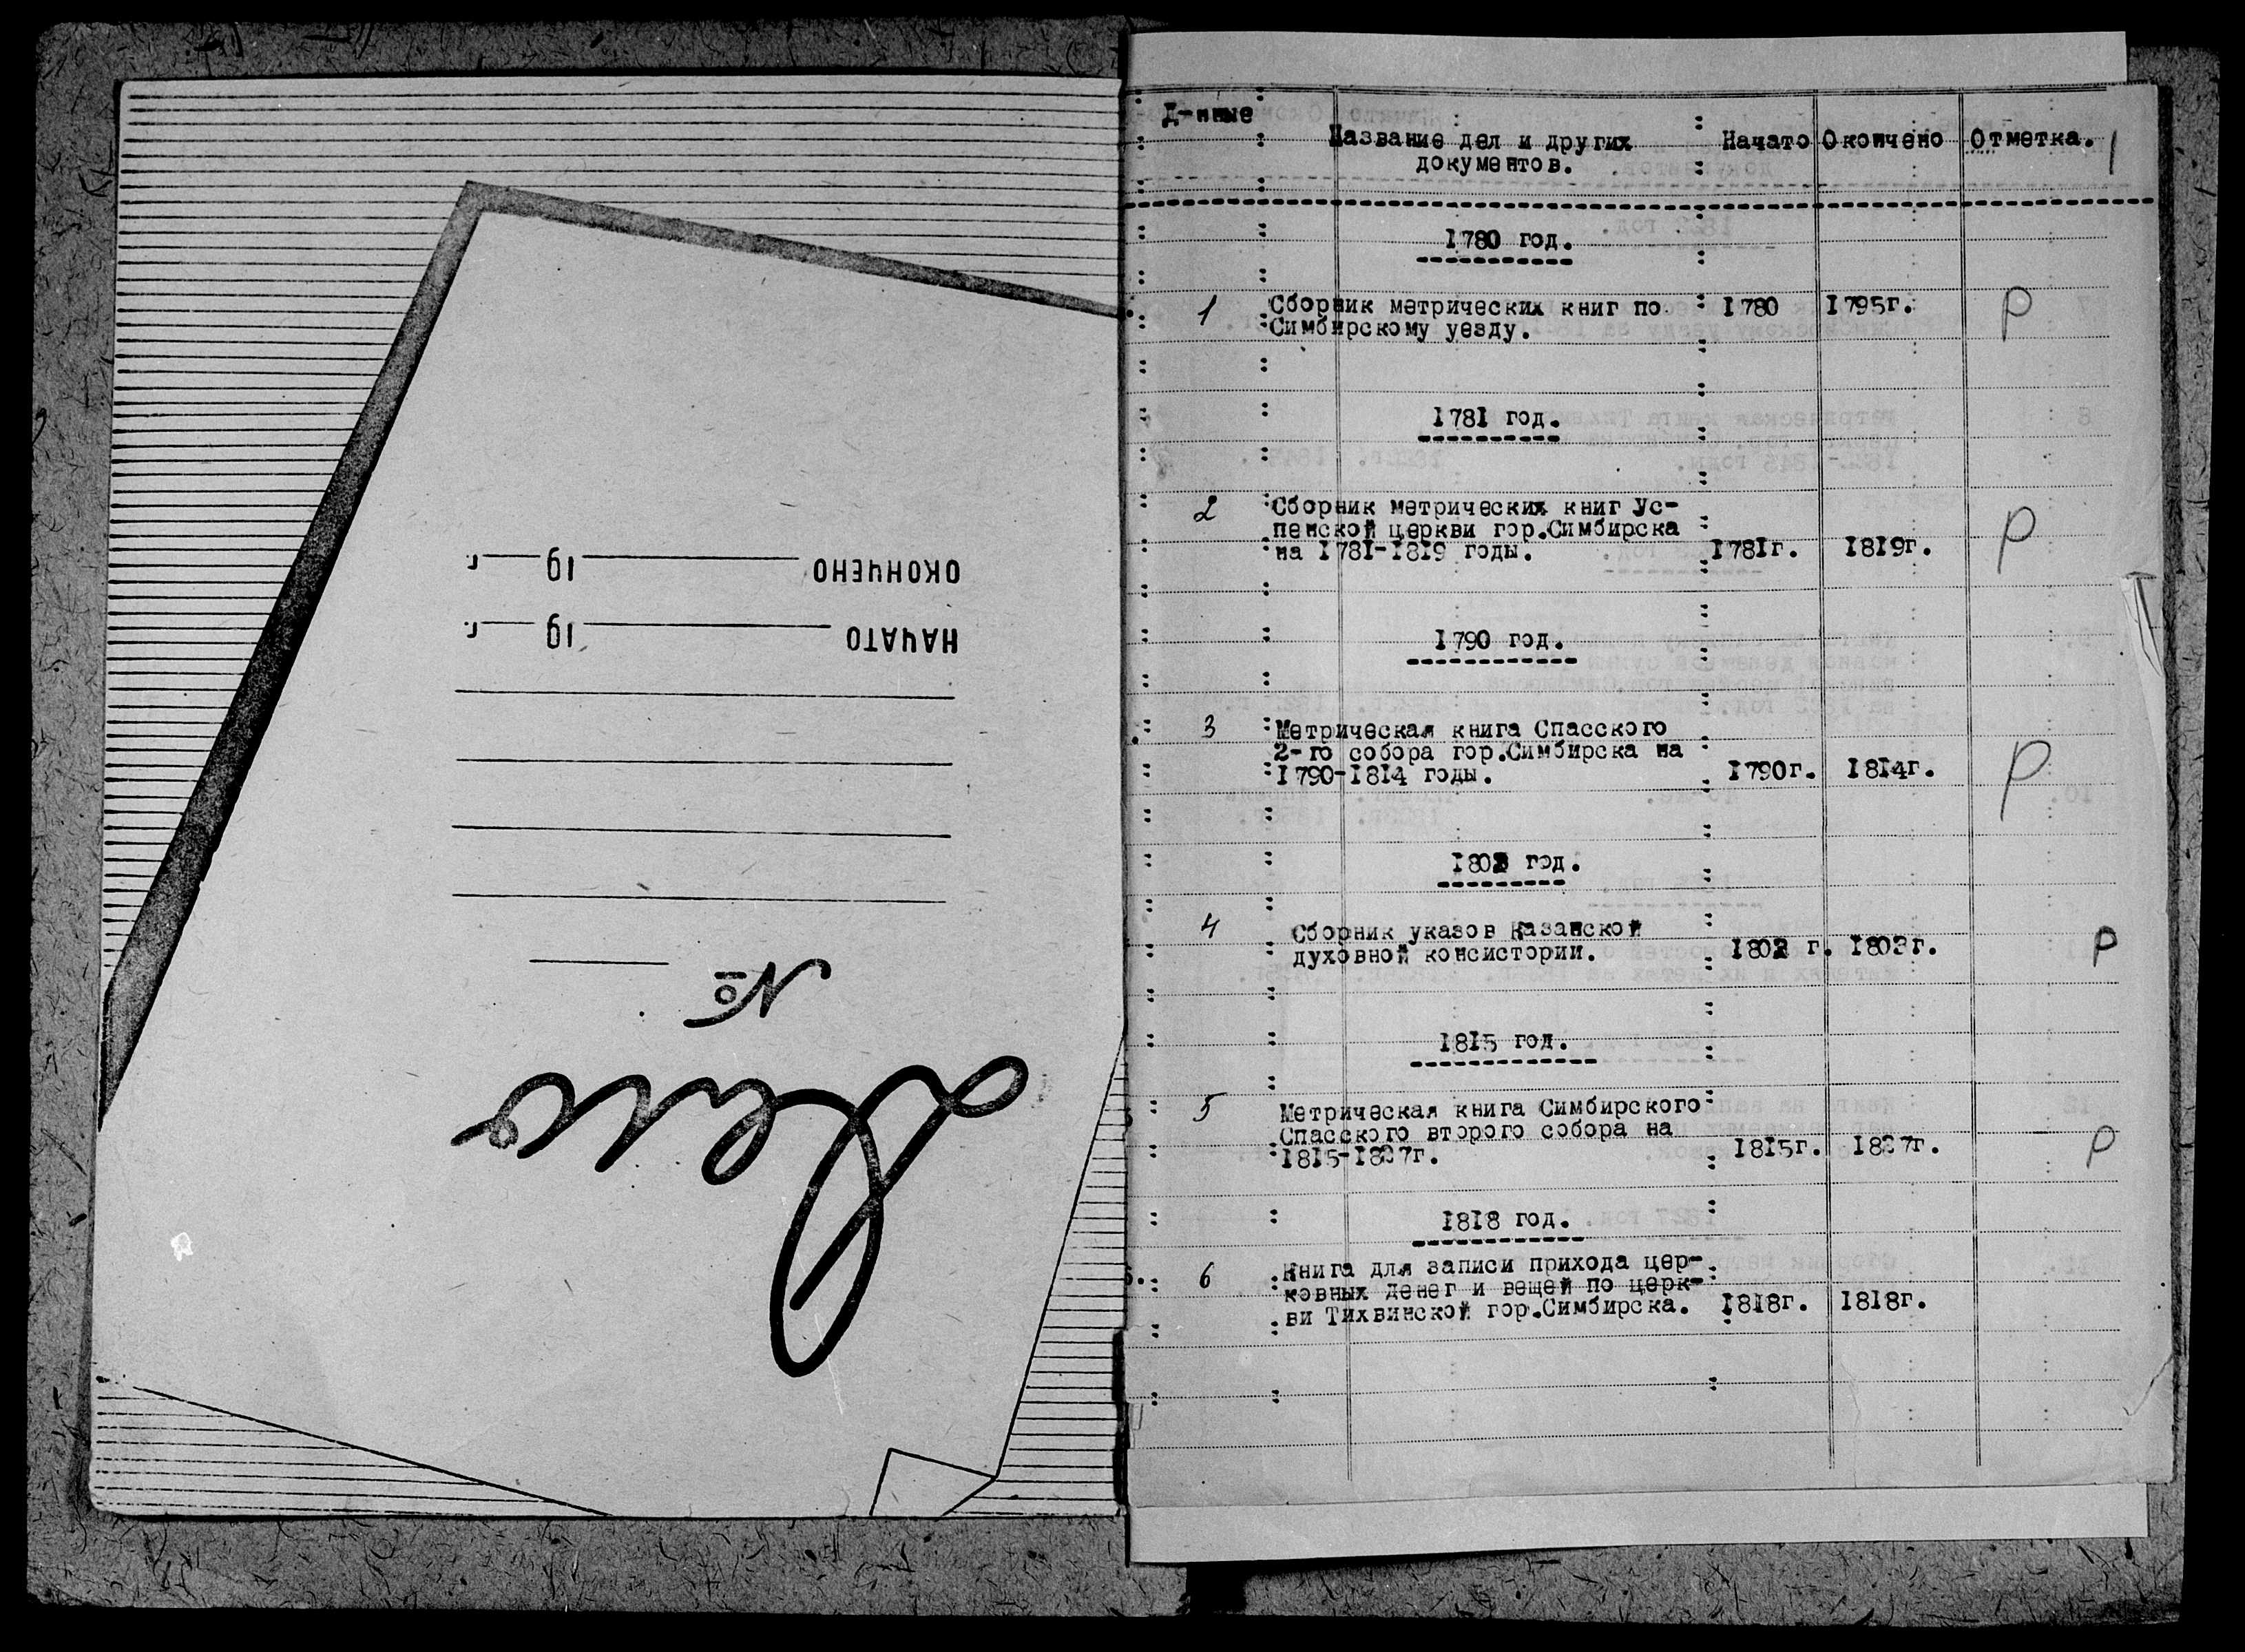 Дело
№
НАЧАТО 19 г.
ОКОНЧЕНО 19 г.
Д-нные Название дел и других документов. Начато Окончено Отметка. 1
1780 год.
1 Сборник метрических книг по 1780 1795г. Р
Симбирскому уезду.
1781 год.
2 Сборник метрических книг Ус-
пенской церкви гор.Симбирска Р
на 1781-1819 годы. 1781г. 1819г.
1790 год.
3 Метрическая книга Спасского
2-го собора гор.Симбирска на
1790-1814 годы. 1790г. 1814г. Р
год.
4 Сборник указов Казанской
духовной консистории. г. Р
1815 год.
5 Метрическая книга Симбирского
Спасского второго собора на
1815-1827г. 1815г. 1827г. Р
1818 год.
6 Книга для записи прихода цер-
ковных денег и вещей по церк-
ви Тихвинской гор.Симбирска. 1818г. 1818г.